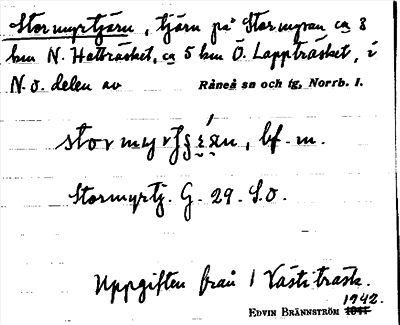 Stormyrtjärn, tjärn på Stormyran ca 8
km N. Hatträsket, ca 5 km Ö. Lappträsket, i
N.ö. delen av Råneå sn och tg, Norrb. l.
bf. m.
Stormyrtj. G. 29. S.O.
Uppgiften från 1 Västiträsk.
1942.
EDVIN BRÄNNSTRÖM 1941